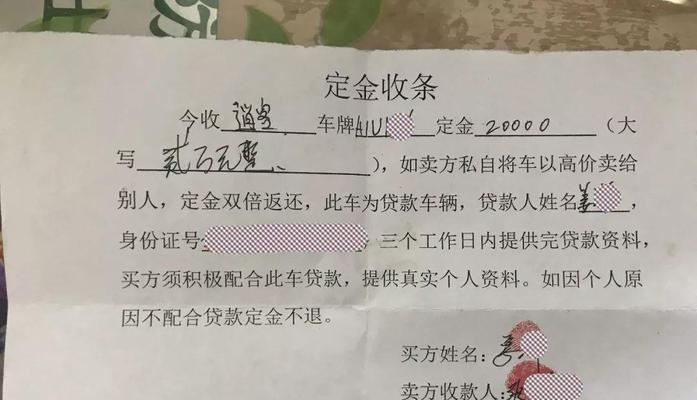 定金收条
今收 逍客 车牌A1U 定金 20000 （大
写 贰万元整 ），如卖方私自将车以高价卖给
别人，定金双倍返还，此车为贷款车辆，贷款人姓名姜，
身份证号 三个工作日内提供完贷款资料，
买方须积极配合此车贷款，提供真实个人资料。如因个人原
因不配合贷款定金不退。
买方姓名：姜
卖方收款人：